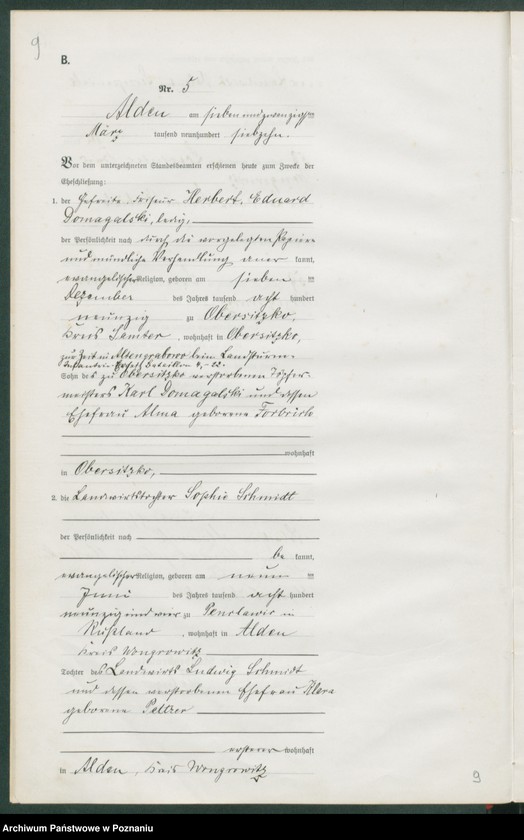 9
B.
Nr. 5
Alden am sieben und zwanzigsten
März tausend neunhundert siebzehn.
Vor dem unterzeichneten Standesbeamten erschienen heute zum Zwecke der
Eheschließung:
1. der Gefreite, Friseur Herbert, Eduard
Domagalski, ledig,
der Persönlichkeit nach durch die vorgelegten Papiere
und mündliche Verhandlung aner kannt,
evangelischer Religion, geboren am sieben ten
Dezember des Jahres tausend acht hundert
neunzig zu Obersitzko,
Kreis Samter, wohnhaft in Obersitzko,
zur Zeit in Altengrabow beim Landsturm-
Infanterie Bataillon
Sohn des zu Obersitzko verstorbenen Töpfer-
meisters Karl Domagalski und dessen
Ehefrau Alma geborene
wohnhaft
in Obersitzko,
2. die Landwirtstochter Sophie Schmidt
der Persönlichkeit nach
be kannt,
evangelischer Religion, geboren am neun ten
Juni des Jahres tausend acht hundert
neunzig und vier zu in
Rußland, wohnhaft in Alden
Kreis Wongrowitz
Tochter des Landwirts Ludwig Schmidt
und dessen verstorbenen Ehefrau Klara
geborene Peltzer
ersterer wohnhaft
in Alden, Kreis Wongrowitz
9
Archiwum Państwowe w Poznaniu